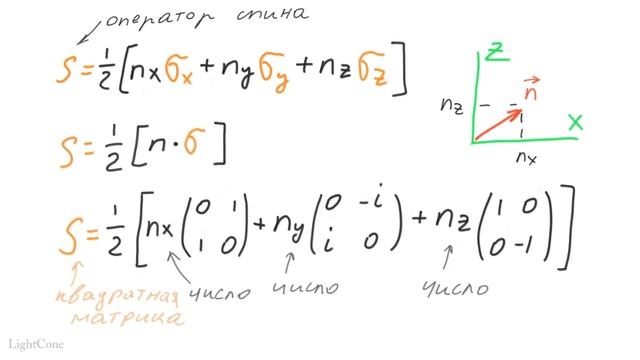 оператор спина
S = 1/2 [nxσx + nyσy + nzσz]
z
n
nz
x
nx
S = 1/2 [n · σ]
S = 1/2 [nx (0 1 1 0) + ny (0 -i i 0) + nz (1 0 0 -1)]
квадратная матрица
число
число
число
LightCone